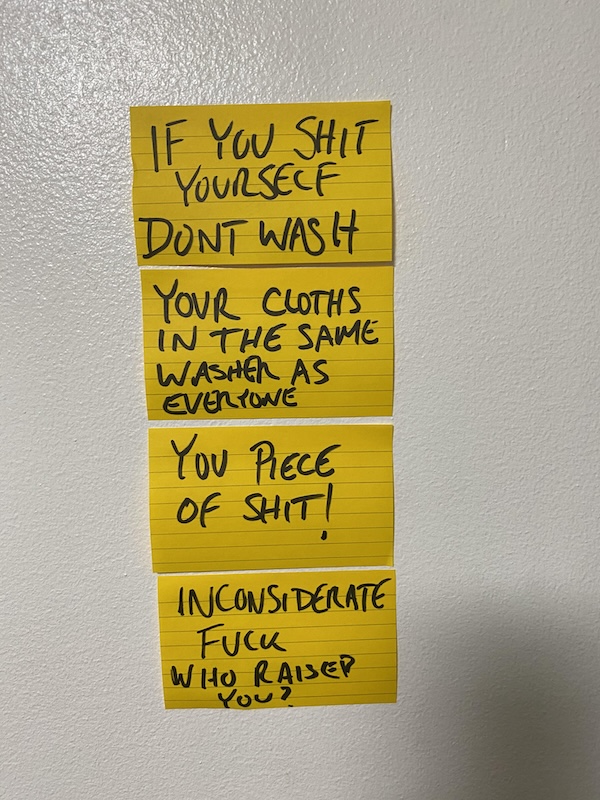 IF YOU SHIT
YOURSELF
DONT WASH
YOUR CLOTHS
IN THE SAME
WASHER AS
EVERYONE
YOU PIECE
OF SHIT!
INCONSIDERATE
FUCK
WHO RAISED
YOU?